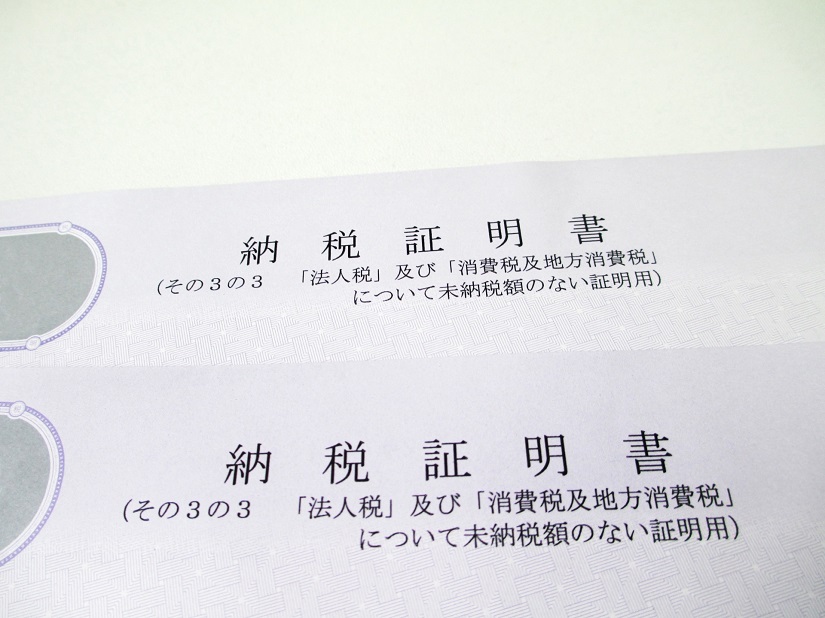 納税証明書
(その3の3 「法人税」及び「消費税及地方消費税」
について未納税額のない証明用)
納税証明書
(その3の3 「法人税」及び「消費税及地方消費税」
について未納税額のない証明用)